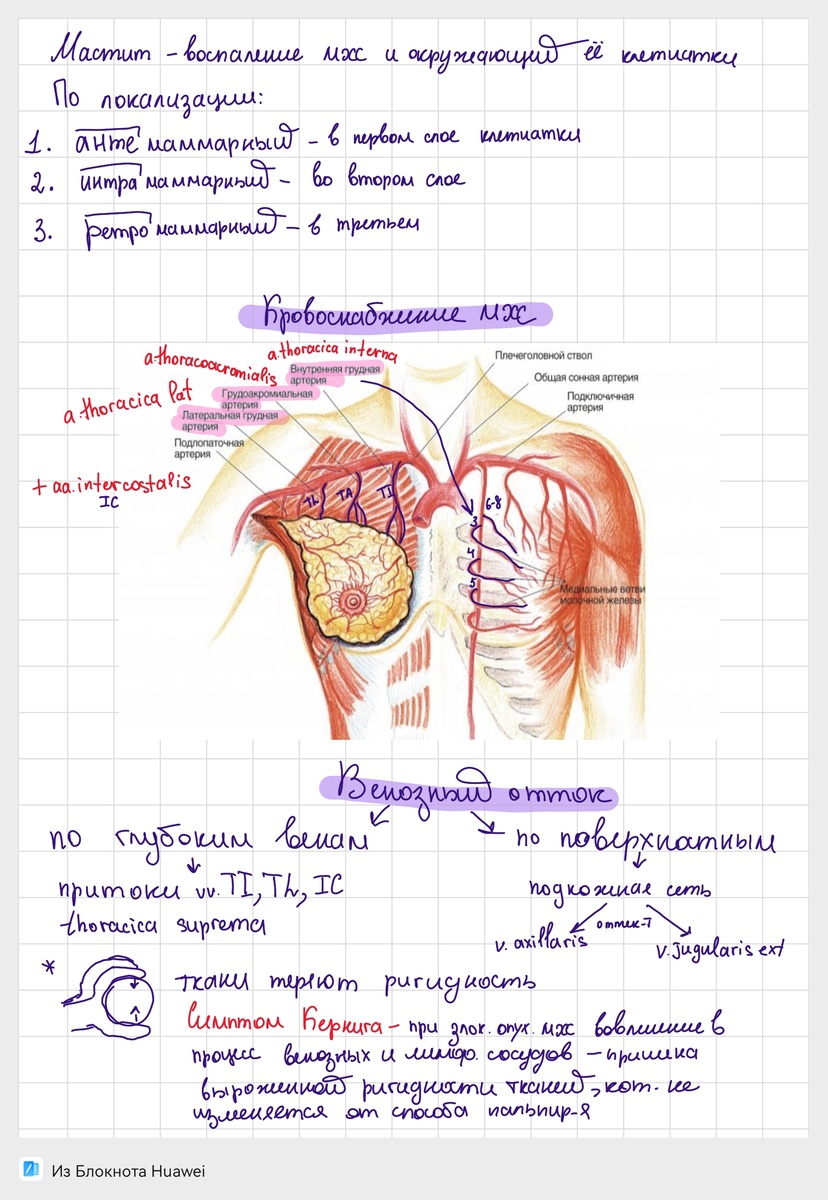 Мастит - воспаление мжс и окружающий её клетчатки
По локализации:
1. анте маммарный - в первом слое клетчатки
2. интра маммарный - во втором слое
3. ретро маммарный - в третьем
Кровоснабжение МЖ
a.thoracoacromialis
a.thoracica interna
a.thoracica lat
+ aa.intercostalis
IC
Внутренняя грудная
артерия
Грудоакромиальная
артерия
Латеральная грудная
артерия
Подлопаточная
артерия
Плечеголовной ствол
Общая сонная артерия
Подключичная
артерия
TL TA TI
6-8
3
4
5
Медиальные ветви
молочной железы
Венозный отток
по глубоким венам
по поверхнатным
притоки vv. TI, TL, IC
thoracica suprema
подкожная сеть
оттек-т
v. axillaris
v. jugularis ext
* ткани теряют ригидность
Симптом Кернига - при злок. опух. мж вовлечение в
процесс венозных и лимфо. сосудов - причина
выроженной ригидности тканей, кот. не
изменяется от способа пальпир-я
Из Блокнота Huawei